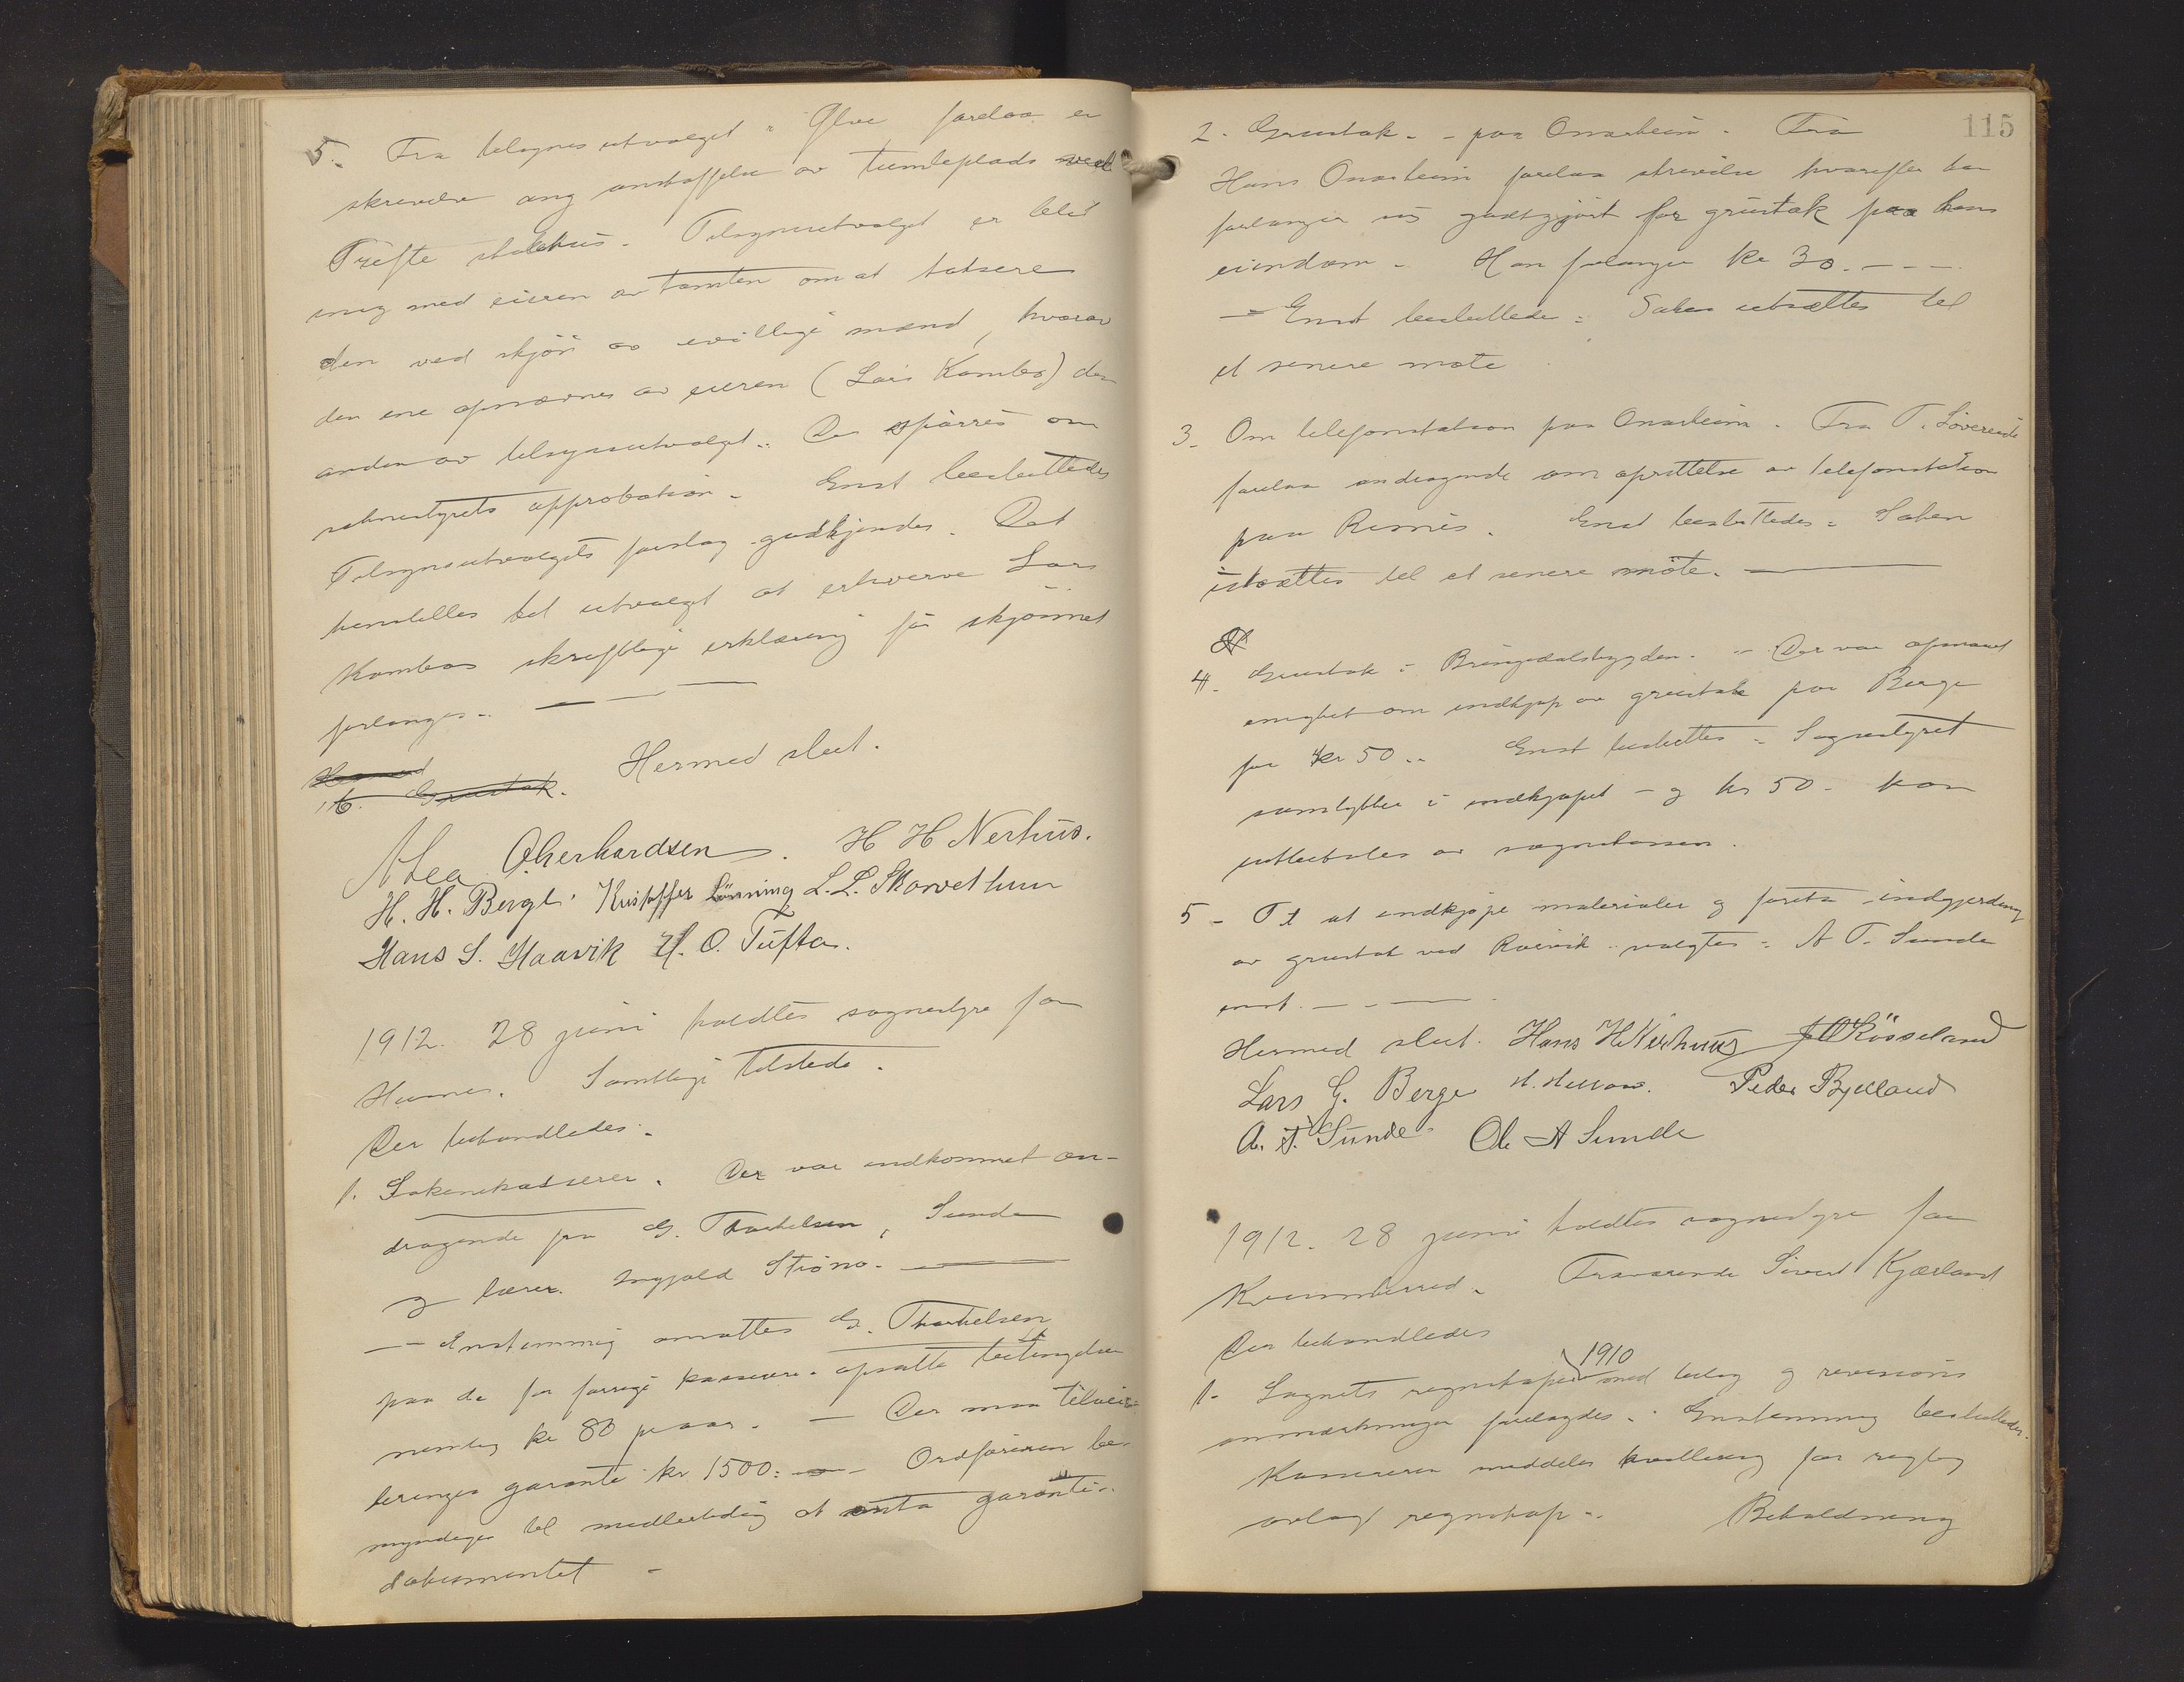 5. Fra tilsynsutvalget i Ølve forelaa en
skrivelse ang anskaffelse av tumleplads ved
Trefte skolehus. Tilsynsutvalget er blit
enig med eieren av tomten om at taksere
den ved skjön av uvillige mænd, hvorav
den ene opnævnes av eieren (Lars Kambo) den
anden av tilsynsutvalget. De spörres om
sognestyrets approbation. Enst besluttedes
Tilsynsutvalgets forslag godkjendes. Det
henstilles til utvalget at erhverve Lars
Kambos skriftlige erklæring för skjönnet
forlanges. —
Hermed
6. Grustak. Hermed slut.
Gerhardsen. H H Nerhus.
H. H. Berge. Kristoffer Lönning L. L. Skarvethun
Hans S. Haavik H. O. Tufta.
1912. 28 juni holdtes sognestyre for
Husnes. Samtlige tilstede.
Der behandledes.
1. Sokenekasserer. Der var indkommet an-
dragende fra G. Thorkelsen, Sunde
og lærer Ingjald Strönö. —
— Enstemmig ansattes G. Thorkelsen
paa de for forrige kasserer opsatte betingelser
nemlig kr 80 pr aar. — Der maa tilveie
bringes garanti kr 1500: — Ordföreren be-
myndiges til midlertidig at anta garanti-
dokumentet —
115
2. Grustak — paa Onarheim. Fra
Hans Onarheim forelaa skrivelse hvorefter han
forlanger sig godtgjort for grustak paa hans
eiendom. Han forlanger kr 30. — — —
— Enst besluttedes: Saken utsættes til
et senere möte
3. Om telefonstation paa Onarheim. Fra T.
forelaa andragende om oprettelse av telefonstation
paa. Enst besluttedes: Saken
utsættes til et senere möte. —
4. Grustak i Bringedalsbygden. — Der var opnaaet
enighet om indkjöp av grustak paa Berge
for kr 50.. Enst besluttes: Sognestyret
samtykker i indkjöpet — og kr 50 — kan
utbetales av sognekassen.
5 — Til at indkjöpe materialer og foreta indgjerding
av grustak ved valgtes: A T. Sunde
enst. — — —
Hermed slut. Hans H. Nerhuus J O Rösseland
Lars G. Berge H. Peder Bjelland
A. T. Sunde Ole A Sunde
1912. 28 juni holdtes sognestyre for
Kvinnherred. Fraværende Sivert Kjærland
Der behandledes
1. Sognets regnskaper 1910 med bilag og revisions
anmerkninger forelagdes. Enstemmig besluttedes.
Kassereren meddeles kvittering for rigtig
avlagt regnskap.. Beholdning